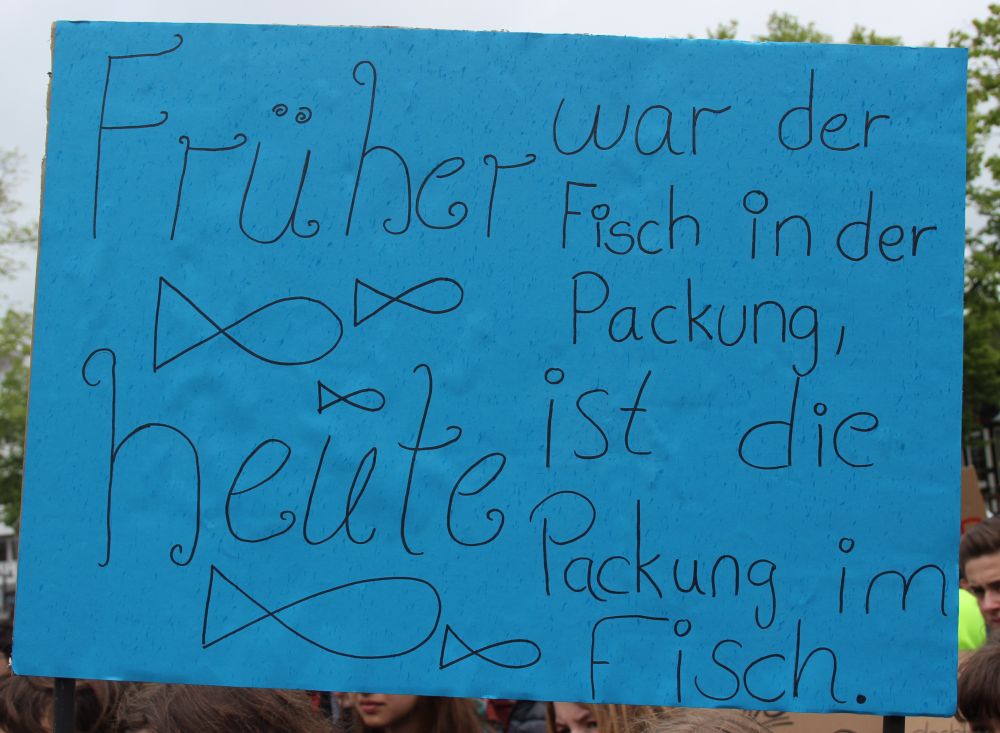 Früher war der
Fisch in der
Packung,
heute ist die
Packung im
Fisch.